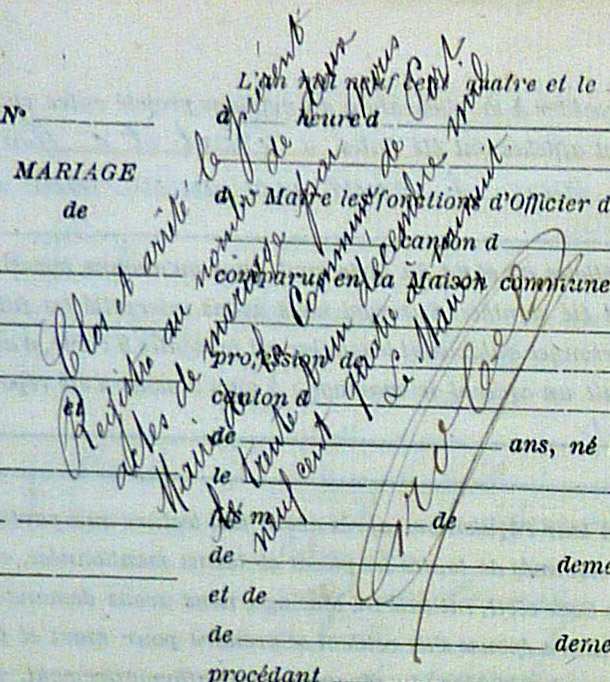 L'an mil neuf cent quatre et le
N°
d heure d
MARIAGE
de
d Maire les fonctions d'Officier d
canton d
comparus en la Maison commune
profession de
et
canton d
de ans, né
le
fils m de
de deme
et de
de deme
procédant
Clos et arrêté le présent
Registre au nombre de deux
actes de mariage par nous
Maire de la Commune de
le trente un décembre mil
neuf cent quatre à minuit
Le Maire